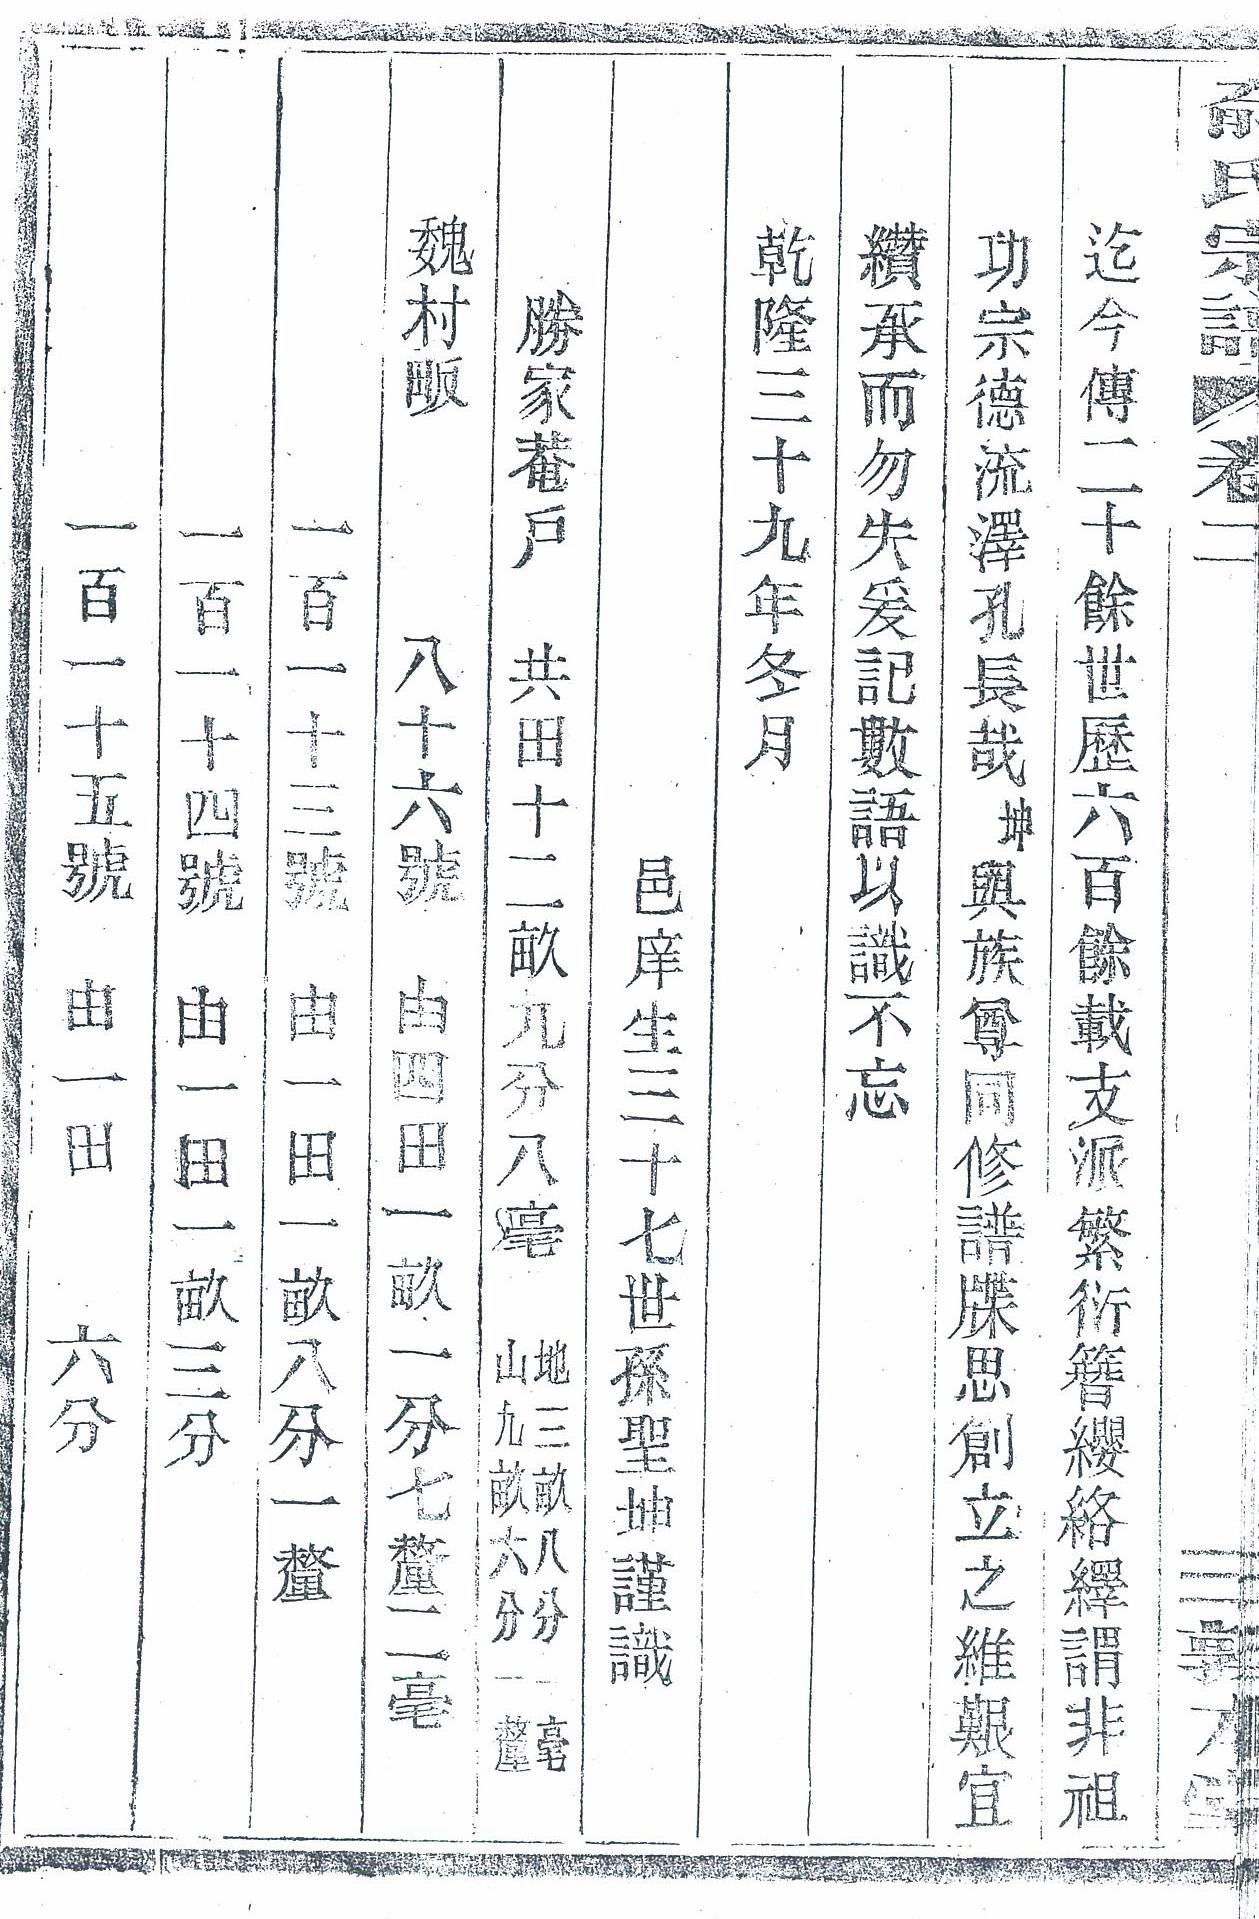 氏宗譜 卷二
迄今傳二十餘世歷六百餘載支派繁衍簪纓絡繹謂非祖
功宗德流澤孔長哉坤與族尊同修譜牒思創立之維艱宜
纘承而勿失爰記數語以識不忘
乾隆三十九年冬月
邑庠生三十七世孫聖坤謹識
勝家菴戶 共田十二畝九分八毫 地三畝八分一毫 山九畝六分一釐
魏村畈 八十六號 由四田一畝一分七釐二毫
一百一十三號 由一田一畝八分一釐
一百一十四號 由一田一畝三分
一百一十五號 由一田 六分